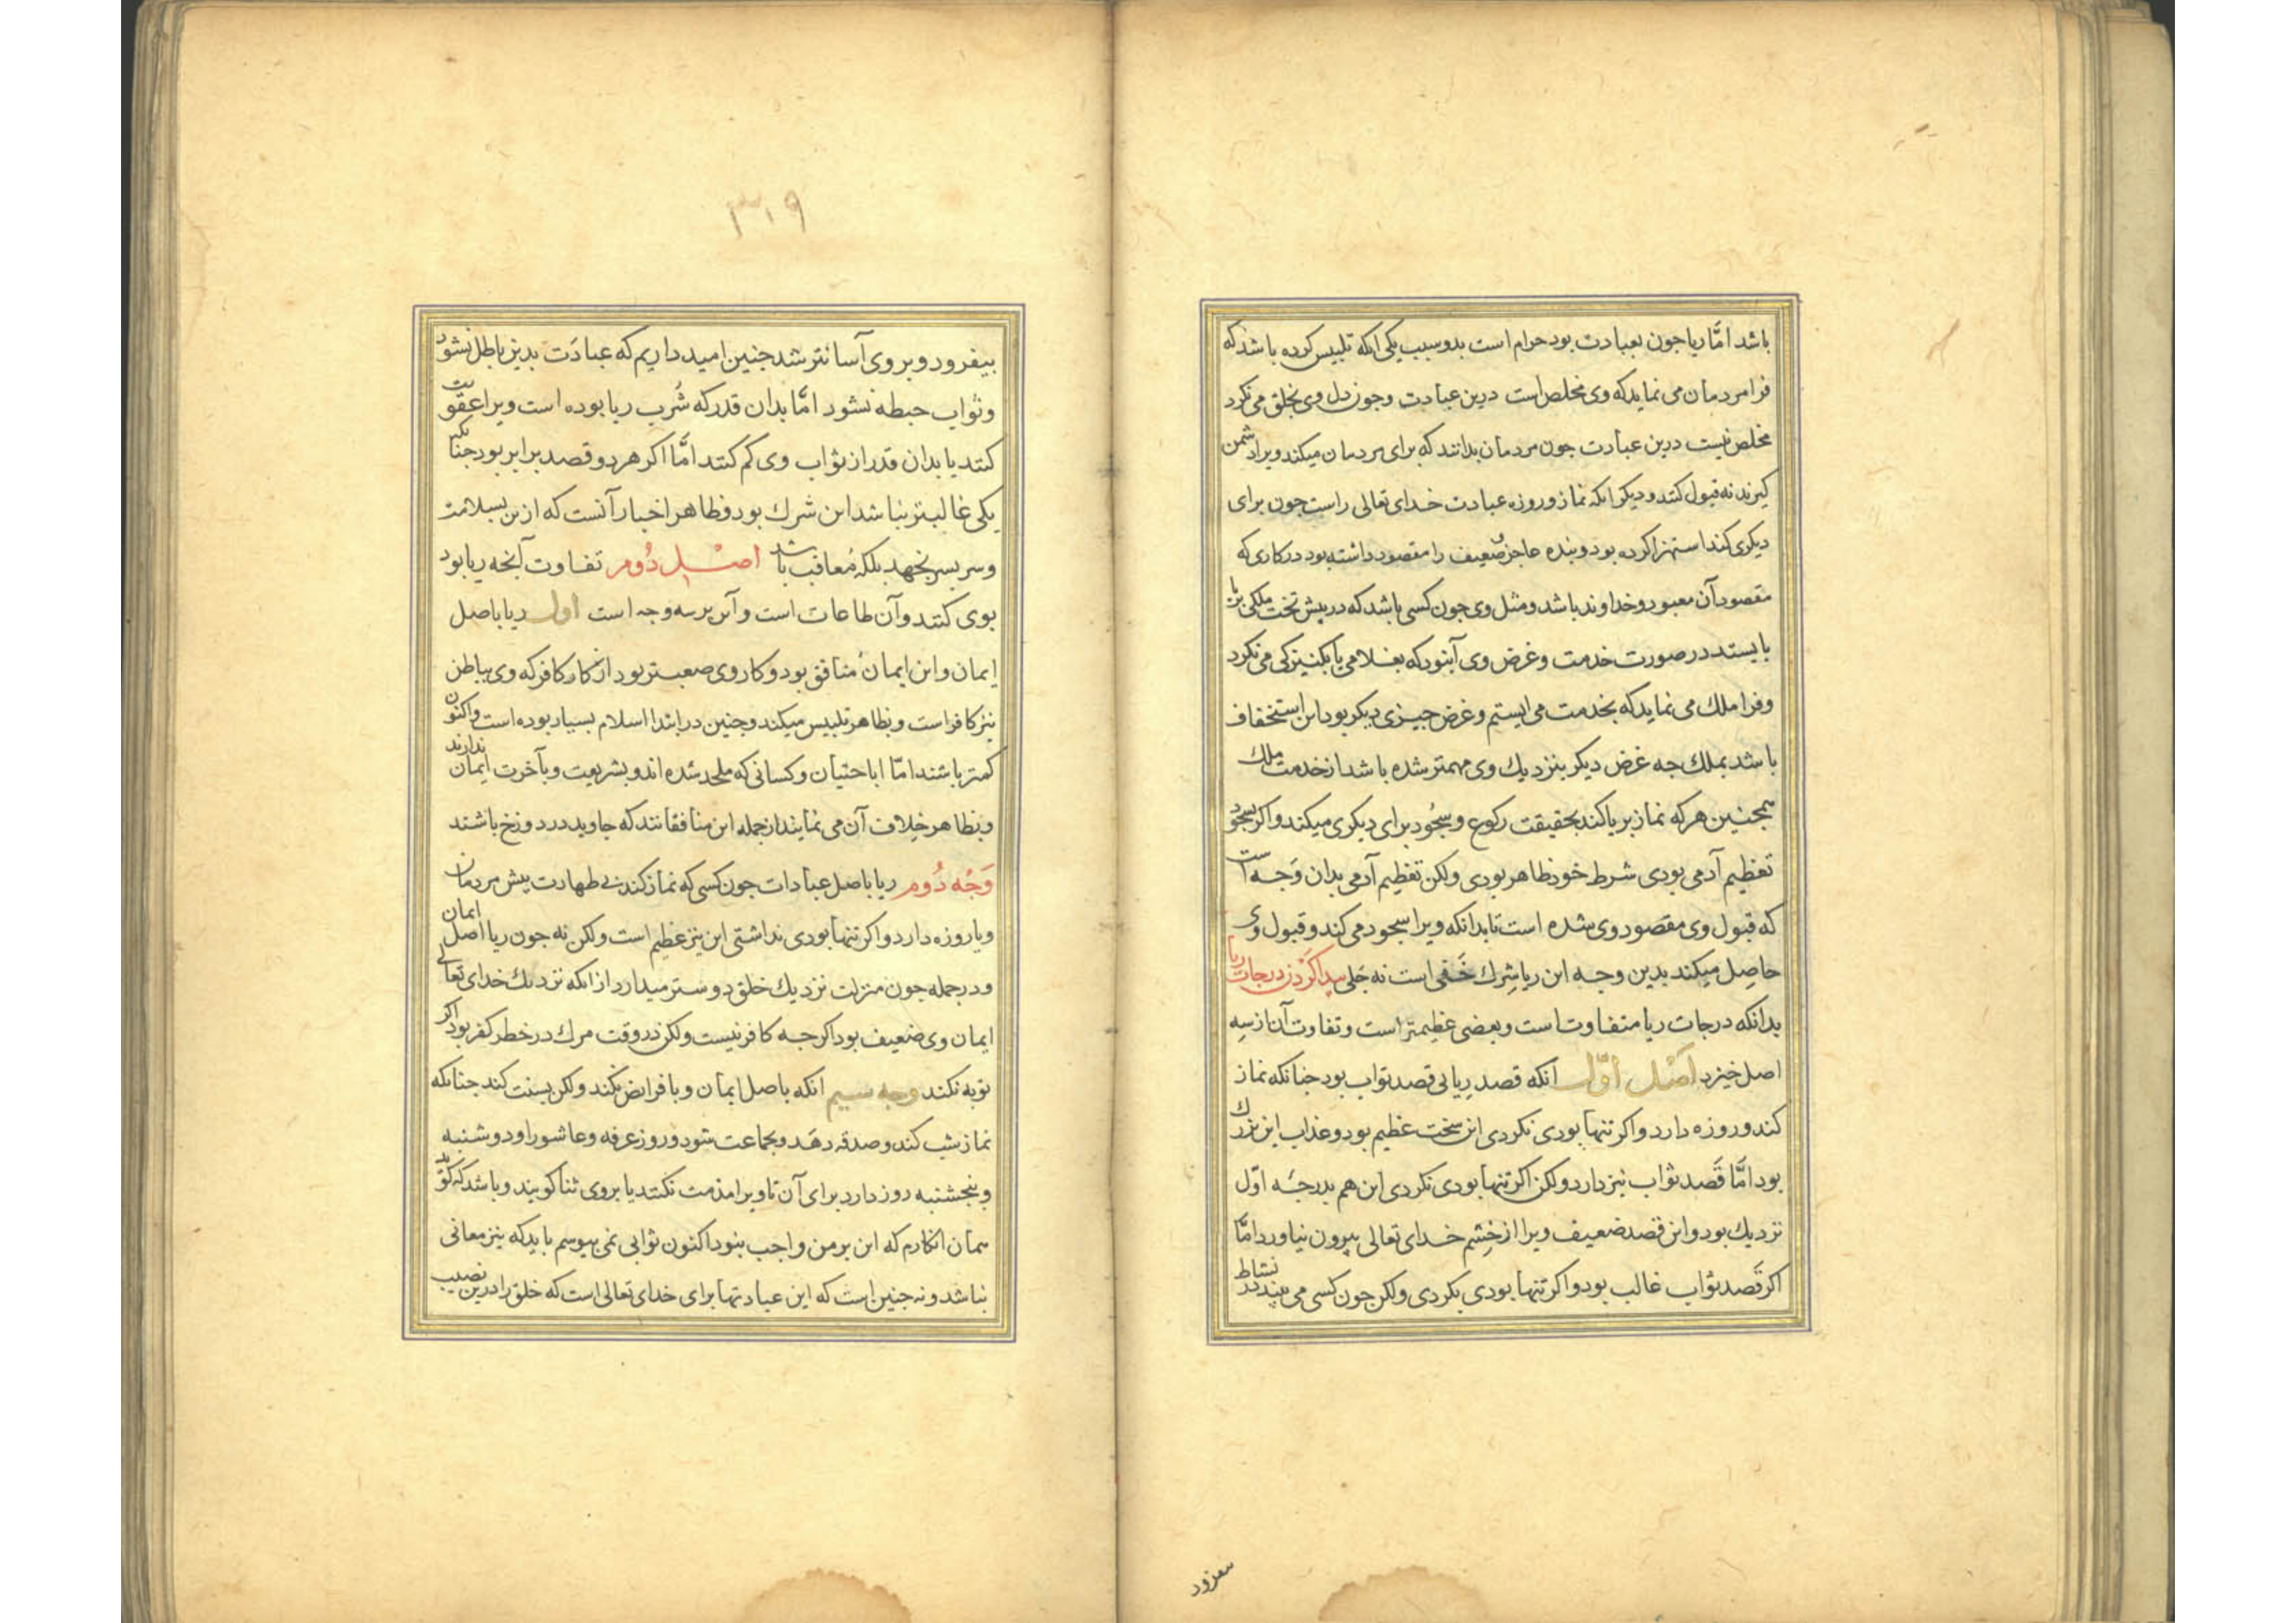 باشد امّا ریا جون بعبادت بود حرام است بدو سبب یکی انکه تلبیس کرده باشد که
فرا مردمان می نماید که وی مخلص است درین عبادت و جون دل وی بخلق می نکرد
مخلص نیست درین عبادت جون مردمان بدانند که برای مردمان میکند ویرا دشمن
کیرند نه قبول کنند و دیکر انکه نماز و روزه عبادت خدای تعالی راست جون برای
دیکری کند استهزا کرده بود و بنده عاجز ضعیف را مقصود داشته بود در کاری که
مقصود آن معبود و خداوند باشد و مثل وی جون کسی باشد که در پیش تخت ملکی بر پا
بایستد در صورت خدمت و غرض وی آن بود که بغلامی یا بکنیزکی می نکرد
و فرا ملک می نماید که بخدمت می ایستم و غرض جیزی دیکر بود این استخفاف
باشد بملک جه غرض دیکر بنزدیک وی مهمتر شده باشد از خدمت ملک
همجنین هر که نماز بریا کند بحقیقت رکوع و سجود برای دیکری میکند و اکر بسجود
تعظیم آدمی بودی شرط خود ظاهر بودی ولکن تعظیم آدمی بدان وَجه است
که قبول وی مقصود وی شده است تا بدانکه ویرا سجود می کند و قبول وی
حاصِل میکند بدین وجه این ریا شِرک خَفی است نه جَلی پیدا کَرْدن درجات ریا
بدانکه درجات ریا متفاوت است و بعضی عظیمتر است و تفاوت آن از سه
اصل خیزد اَصْل اوّل انکه قصد رِیا بی قصد ثواب بود جنانکه نماز
کند و روزه دارد و اکر تنها بودی نکردی این سخت عظیم بود و عذاب این بزرک
بود امَّا قَصد ثواب نیز دارد ولکن اکر تنها بودی نکردی این هم بدرجۀ اوّل
نزدیک بود و این قصد ضعیف ویرا از خِشم خدای تعالی بیرون نیاورد امَّا
اکر قَصد ثواب غالب بود و اکر تنها بودی بکردی ولکن جون کسی می بیند در نشاط
۳۱۹
بیفزود و بر وی آسانتر شد جنین امید داریم که عبادَت بدین باطل نشود
و ثواب حبطه نشود امَّا بدان قدر که شُرب ریا بوده است ویرا عقوبت
کنند یا بدان قدر از ثواب وی کم کنند امَّا اکر هر دو قصد برابر بود جنانکه
یکی غالبتر نباشد این شرک بود و ظاهر اخبار آنست که ازین بسلامت
و سر بسر نجهد بلکه مُعاقب باشد اصْل دُوم تفاوت آنجه ریا بود
بوی کنند و آن طاعات است و آین بر سه وجه است اول ریا باصل
اِیمان و این ایمان منافق بود و کار وی صعبتر بود از کار کافر که وی بباطن
نیز کافر است و بظاهر تلبیس میکند و جنین در ابتدا اسلام بسیار بوده است و اکنون
کمتر باشند امّا اباحتیان و کسانی که ملحد شده اند و بشریعت و بآخرت ایمان ندارند
و بظاهر خِلاف آن می نمایند از جمله این منافقانند که جاوید در دوزخ باشند
وَجْه دُوم ریا باصل عبادات جون کسی که نماز کند بی طهارت پیش مردمان
و یا روزه دارد و اکر تنها بودی نداشتی این نیز عظیم است ولکن نه جون ریا اصل ایمان
و در جمله جون منزلت نزدیک خلق دوستر میدارد از انکه نزدیک خدای تعالی
ایمان وی ضعیف بود اکر جه کافر نیست ولکن در وقت مرک در خطر کفر بود اکر
توبه نکند وجه سیم انکه باصل ایمان و با فرایض نکند ولکن بسنت کند جنانکه
نماز شب کند و صدقه دهد و بجماعت شود و روز عرفه و عاشورا و دوشنبه
و پنجشنبه روز دارد برای آن تا ویرا مذمت نکنند یا بروی ثنا کویند و باشد که کوید
همان انکارم که این بر من واجب نبود اکنون ثوابی نمی بیوسم باید که نیز معانی
نباشد و نه جنین است که این عبادتها برای خدای تعالی است که خلق را درین نصیب
بیفزود